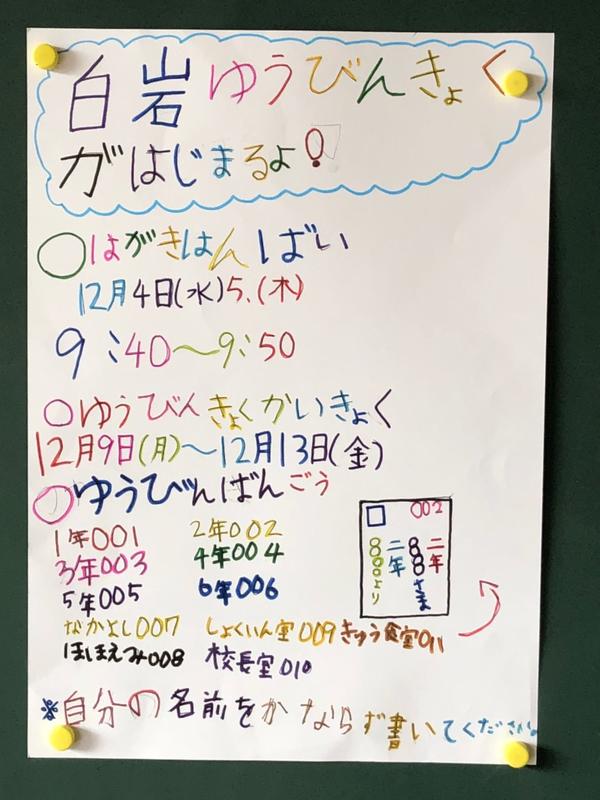 白岩ゆうびんきょく
がはじまるよ!
○はがきはんばい
12月4日(水)5.(木)
9:40〜9:50
○ゆうびんきょくかいきょく
12月9日(月)〜12月13日(金)
○ゆうびんばんごう
1年001 2年002
3年003 4年004
5年005 6年006
なかよし007 しょくいん室009 きゅう食室011
ほほえみ008 校長室010
002
二年
888さま
二年
888より
※自分の名前をかならず書いてください。